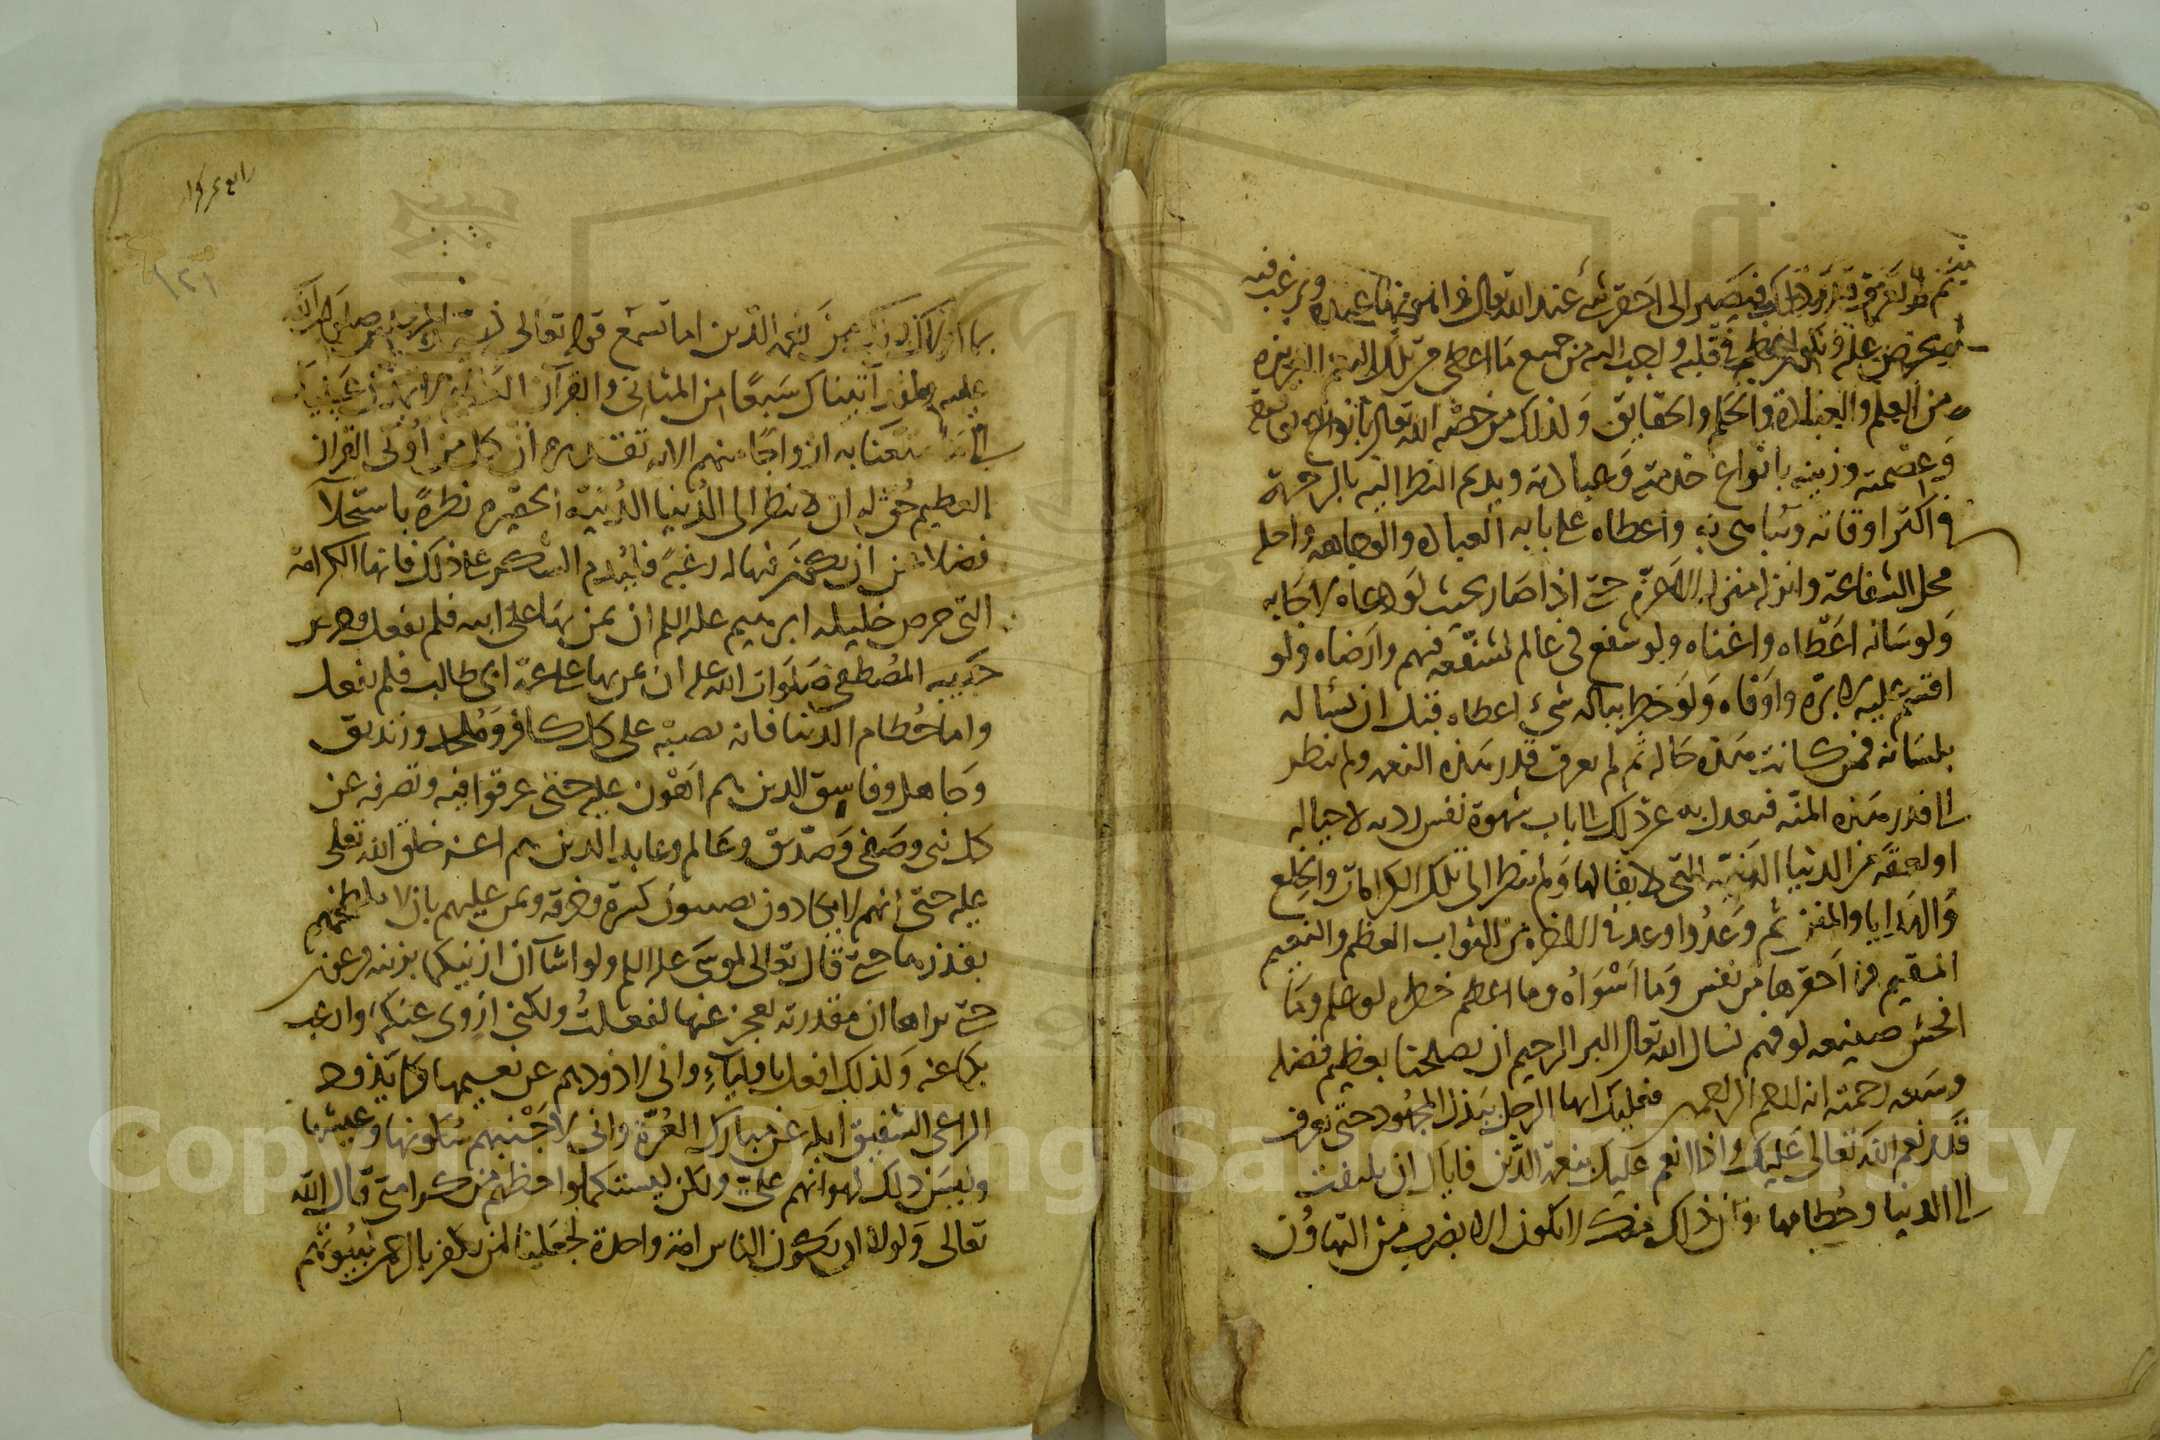 فيصير الى احقر شئ عند الله تعالى
قلبه واحب اليه من جميع ما اعطى من تلك النعم العزيزة
من العلم والعبادة والحكم والحقايق وكذلك من خصه الله تعالى بانواع
وعصمته وزينه بانواع خدمته وعبادته ويديم النظر اليه بالرحمة
في اكثر اوقاته ويباهي به واعطاه على بابه العبادة والوجاهة واحله
محل الشفاعة وانزله منزلة الاعزة حتى اذا صار بحيث لو دعاه لاجابه
ولو ساله اعطاه واغناه ولو شفع في عالم لشفعه فيهم وارضاه ولو
اقسم عليه لابره واوفاه ولو خطر بباله شئ اعطاه قبل ان يساله
بلسانه فمن كانت هذه حاله ثم لم يعرف قدر هذه النعمة ولم ينظر
الى قدر هذه المنة فيعدل به عن ذلك الى باب شهوة نفس ردية لا حيا له
او لعقة من الدنيا الدنية التي لا بقا لها ولم ينظر الى تلك الكرامات والخلع
والهدايا والمنن ثم وعدوا وعد في الاخرة من الثواب العظيم والنعيم
المقيم فما احقرها من نفس وما اسواه وما اعظم خطره لو علم وما
افحش صنيعه لو فهم نسال الله تعالى البر الرحيم ان يصلحنا بعظيم فضله
وسعة رحمته انه ارحم الراحمين فعليك ايها الرجل ببذل المجهود حتى تعرف
قدر نعم الله تعالى عليك واذا انعم عليك بنعمة الدين فاياك ان تلتفت
الى الدنيا وحطامها فان ذلك منك لا يكون الا بضرب من التهاون
بما اولاك ربك من نعمة الدين اما تسمع قوله تعالى لسيد المرسلين صلى الله
عليه ولقد آتيناك سبعا من المثاني والقرآن العظيم لا تمدن عينيك
الى ما متعنا به ازواجا منهم الاية تقديره ان كل من اوتى القران
العظيم حق له ان لا ينظر الى الدنيا الدنية الحقيرة نظرة باستحلا
فضلا من ان يكون فيها له رغبة فليدم الشكر على ذلك فانها الكرامة
التي حرص خليله ابرهيم عليه السلم ان يمن بها على ابيه فلم يفعل وحرص
حبيبه المصطفى صلوات الله عليه ان يمن بها على عمه ابى طالب فلم يفعل
واما حطام الدنيا فانه يصبه على كل كافر وملحد وزنديق
وجاهل وفاسق الذين هم اهون عليه حتى غرقوا فيه وتصرفه عن
كل نبى وصفى وصديق وعالم وعابد الذين هم اعز خلق الله تعالى
عليه حتى انهم لا يكادون يصيبون كسرة وخرقة ويمن عليهم بان لا يلطخهم
بقذرها حتى قال تعالى لموسى عليه السلم ولو اشآ ان ازينكما بزينة فرعون
حتى يراها ان مقدرته تعجز عنها لفعلت ولكنى ازوى عنكما وارغب
بكما عنه وكذلك افعل باوليآءى وانى لاذودهم عن نعيمها كما يذود
الراعى الشفيق ابله عن مبارك العرة وانى لاجنبهم سلوتها وعيشها
وليس ذلك لهوانهم على ولكن ليستكملوا حظهم من كرامتى قال الله
تعالى ولولا ان يكون الناس امة واحدة لجعلنا لمن يكفر بالرحمن لبيوتهم